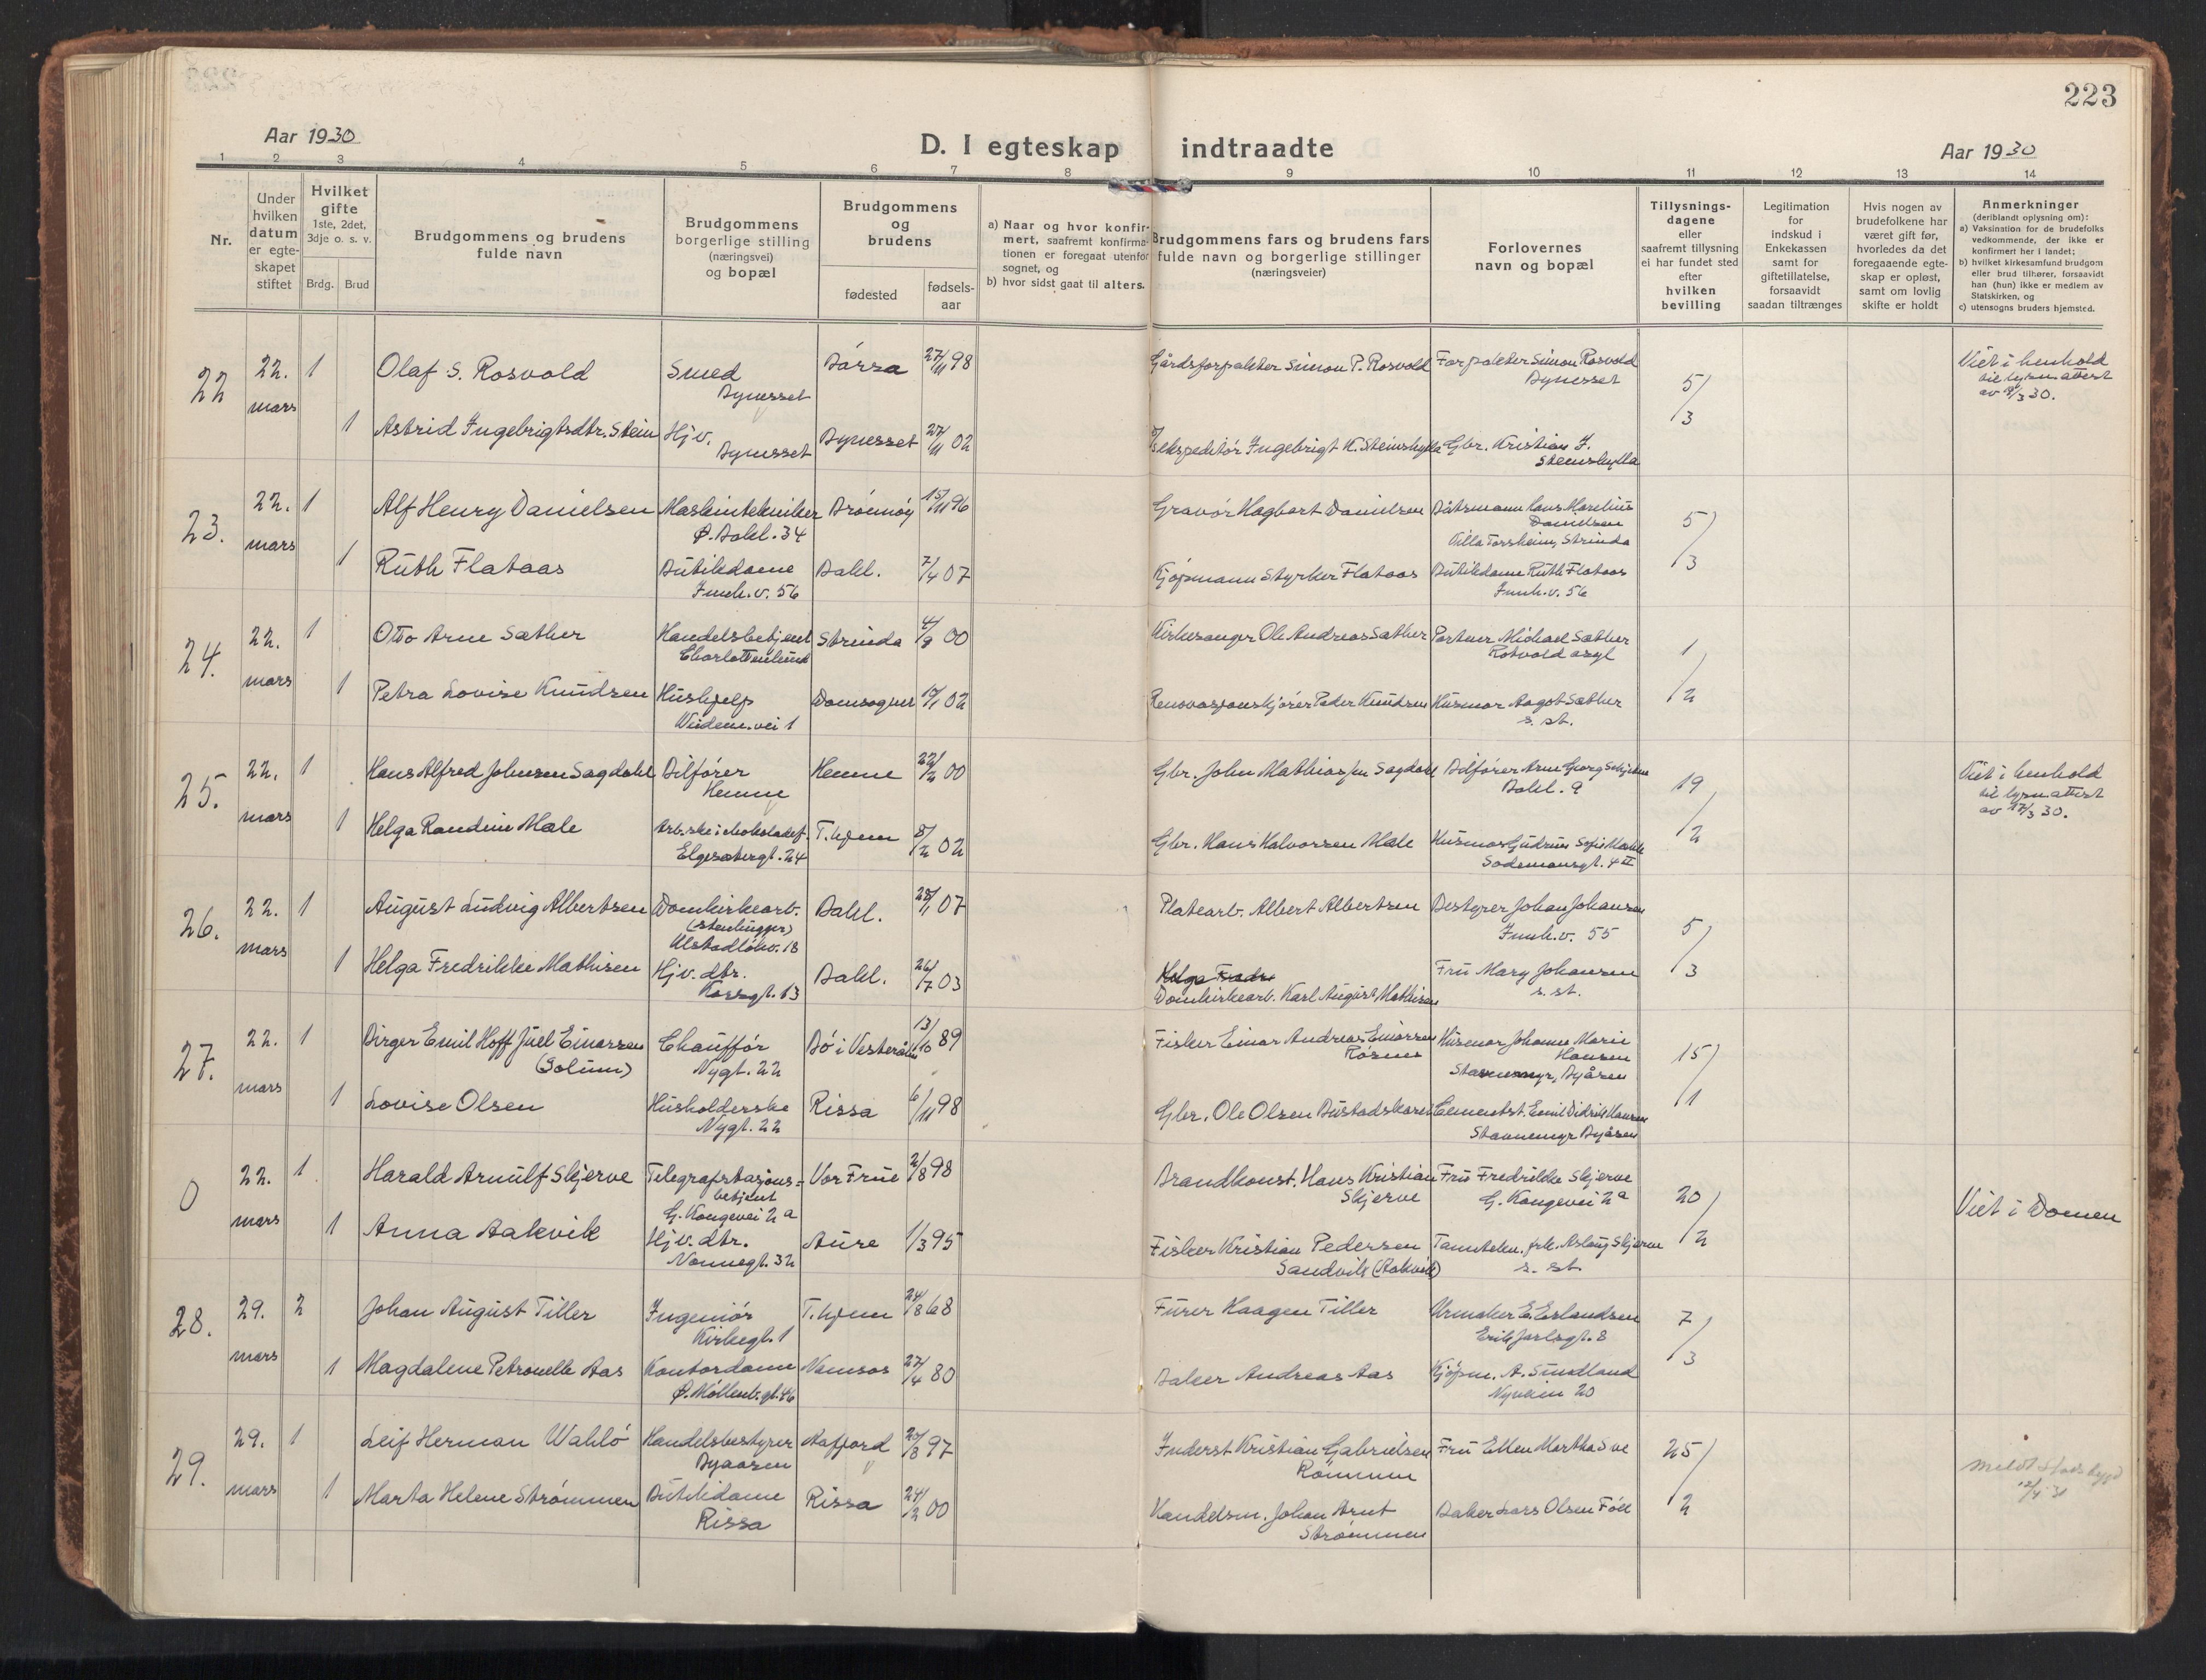 223
Aar 1930
D. I egteskap indtraadte
Aar 1930
1 2 3 4 5 6 7 8 9 10 11 12 13 14
Nr.
Under
hvilken
datum
er egte-
skapet
stiftet
Hvilket
gifte
1ste, 2det,
3dje o. s. v.
Brdg. Brud
Brudgommens og brudens
fulde navn
Brudgommens
borgerlige stilling
(næringsvei)
og bopæl
Brudgommens
og
brudens
fødested
fødsels-
aar
a) Naar og hvor konfir-
mert, saafremt konfirma-
tionen er foregaat utenfor
sognet, og
b) hvor sidst gaat til alters.
Brudgommens fars og brudens fars
fulde navn og borgerlige stillinger
(næringsveier)
Forlovernes
navn og bopæl
Tillysnings-
dagene
eller
saafremt tillysning
ei har fundet sted
efter
hvilken
bevilling
Legitimation
for
indskud i
Enkekassen
samt for
giftetillatelse,
forsaavidt
saadan tiltrænges
Hvis nogen av
brudefolkene har
været gift før,
hvorledes da det
foregaaende egte-
skap er opløst,
samt om lovlig
skifte er holdt
Anmerkninger
(deriblandt oplysning om):
a) Vaksination for de brudefolks
vedkommende, der ikke er
konfirmert her i landet;
b) hvilket kirkesamfund brudgom
eller brud tilhører, forsaavidt
han (hun) ikke er medlem av
Statskirken, og
c) utensogns bruders hjemsted.
22
22. mars
1
Olaf S. Rosvold
Smed
Bynesset
Børsa
27/11 98
Gårdsforpakter Simon P. Rosvold
Forpakter Simon Rosvold
Bynesset
5/3
Viet i henhold
til lysn.attest
30.
1
Astrid Ingebrigtsdtr. Stein
Hjv.
Bynesset
Bynesset
27/11 02
ekspeditør Ingebrigt K. Steinshylla
Gbr. Kristian I.
Steinshylla
23.
22. mars
1
Alf Henry Danielsen
Maskintekniker
Ø. Bakl. 34
Brønnøy
15/11 96
Gravør Hagbart Danielsen
Båtsmann Hans Marelius
Danielsen
Villa Torsheim, Strinda
5/3
1
Ruth Flataas
Butikdame
Innh.v. 56
Bakl.
7/4 07
Kjøpmann Styrker Flataas
Butikdame Ruth Flataas
Innh.v. 56
24.
22. mars
1
Otto Arne Sæther
Handelsbetjent
Charlottenlund
Strinda
4/9 00
Kirkesanger Ole Andreas Sæther
Portner Michael Sæther
Rotvold asyl
1/2
1
Petra Lovise Knudsen
Hushjelp
Weidem.vei 1
Domsognet
02
Renovasjonskjører Peder Knudsen
Husmor Aagot Sæther
s. st.
25.
22. mars
1
Hans Alfred Johnsen Sagdahl
Bilfører
Hemne
Hemne
22/2 00
Gbr. John Mathiassen Sagdahl
Bilfører Arne Georg
Bakl. 9
19/2
Viet i henhold
til lysn.attest
av 17/3 30.
1
Helga Randine Male
Arb.ske i chokoladef.
Elgesetergt. 24
T.hjem
8/2 02
Gbr. Hans Halvorsen Male
Husmor Gudrun Sofie
Sodemansgt. 4 II
26.
22. mars
1
August Ludvig Albertsen
Domkirkearb.
(stenhugger)
Ulstadløkv. 18
Bakl.
28/1 07
Platearb. Albert Albertsen
Bestyrer Johan Johansen
Innh.v. 55
5/3
1
Helga Fredrikke Mathisen
Hjv. dtr.
Korsgt. 13
Bakl.
26/7 03
Helga Fredr
Domkirkearb. Karl August Mathisen
Fru Mary Johansen
s. st.
27.
22. mars
1
Birger Emil Hoff Juel Einarsen
(Solum)
Chauffør
Nygt. 22
Bø i Vesterålen
13/10 89
Fisker Einar Andreas Einarsen
Husmor Johanne Marie
Hansen
Stavnemyr, Byåsen
15/1
1
Lovise Olsen
Husholderske
Nygt. 22
Rissa
6/11 98
Gbr. Ole Olsen Bustadskaret
Cementst. Emil Didrik Hansen
Stavnemyr Byåsen
0
22. mars
1
Harald Arnulf Skjerve
Telegrafstasjons-
betjent
G. Kongevei 2a
Vor Frue
2/8 98
Brandkonst. Hans Kristian
Skjerve
Fru Fredrikke Skjerve
G. Kongevei 2a
20/2
Viet i Domen
1
Anna Aakvik
Hjv. dtr.
Nonnegt. 32
Aure
1/3 95
Fisker Kristian Pedersen
Sandvik (Aakvik)
Tanntekn. frk. Aslaug Skjerve
s. st.
28.
29. mars
2
Johan August Tiller
Ingeniør
Kirkegt. 1
T.hjem
24/8 68
Furer Haagen Tiller
Urmaker E. Erlandsen
Erik Jarlsgt. 8
7/3
1
Magdalene Petronelle Aas
Kontordame
Ø. Møllenb.gt. 46
Namsos
27/4 80
Baker Andreas Aas
Kjøpm. A. Smedland
Nyveien 20
29.
29. mars
1
Leif Herman Wahlø
Handelsbestyrer
Byaasen
Aafjord
20/3 97
Inderst Kristian Gabrielsen
Fru Ellen Martha Sve
25/2
meldt Stadsbygd
1
Marta Helene Strømmen
Butikdame
Rissa
Rissa
24/2 00
Handelsm. Johan Arnt
Strømmen
Baker Lars Olsen Føll